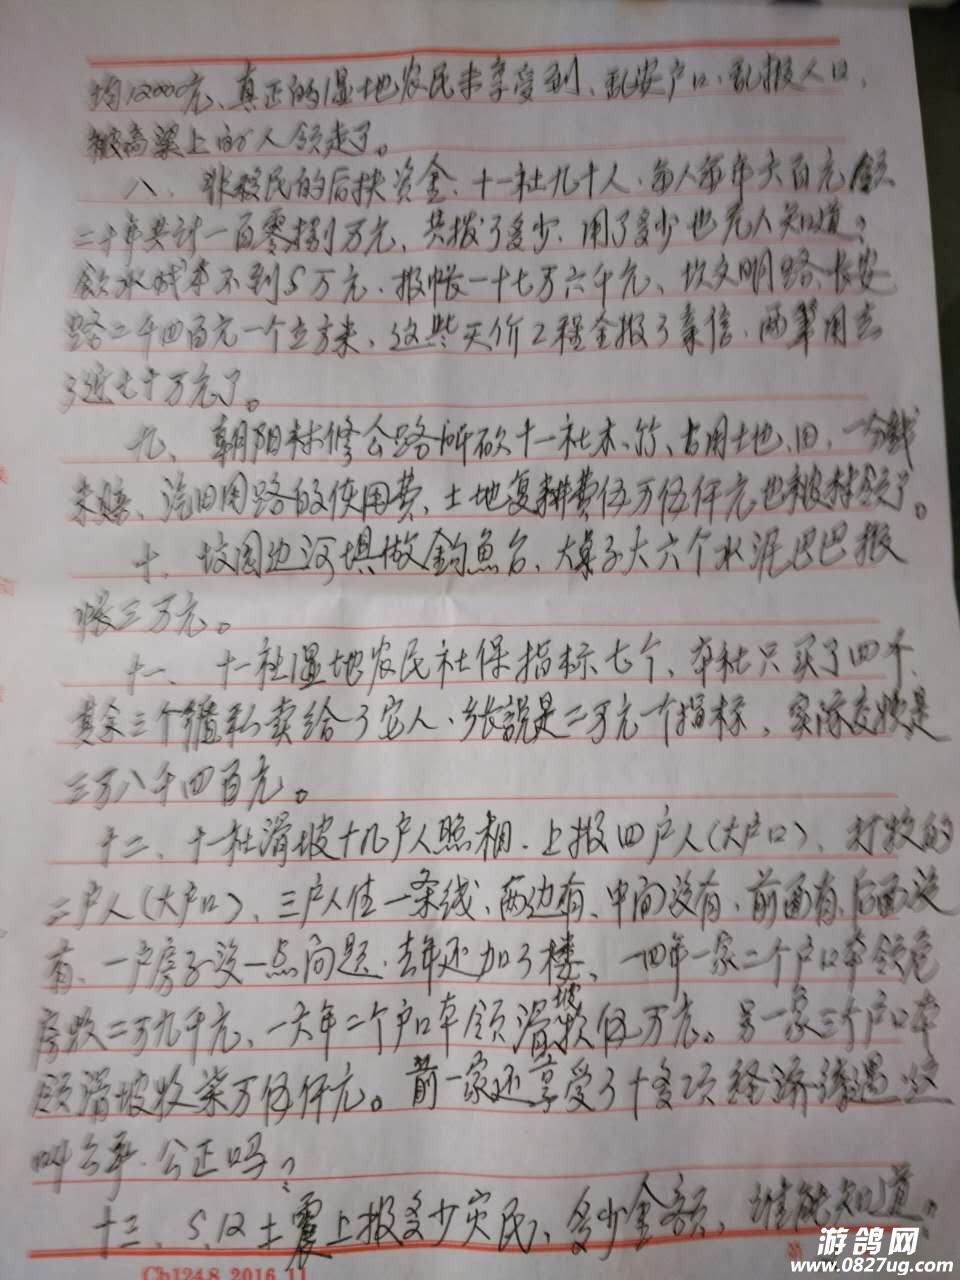 约12000元、真正的湿地农民未享受到、乱安户口、乱报人口,
被高梁上的人领走了。
八、非移民的后扶资金、十一社九十人、每人每年六百元领
二十年共计一百零捌万元、共拨了多少、用了多少也无人知道。
饮水成本不到5万元、报帐一十七万六千元、坎文明路、长安
路二千四百元一个立方米、这些天价工程全报了 两 用去
了近七十万元了。
九、朝阳林修公路所砍十一社木、竹、占用土地、田、一分钱
未赔、汽田用路的使用费、土地复耕费伍万伍仟元也被村领了。
十、坟园边河堤做钓鱼台、大桌子大六个水泥巴巴报
帐三万元。
十一、十一社湿地农民社保指标七个、本社只买了四个、
其余三个 私卖给了它人、 说是二万元一个指标、实际交款是
三万八千四百元。
十二、十一社滑坡十几户人照相、上报四户人(大户口)、打款的
二户人(大户口)、三户人住一条线、两边有、中间没有、前面有、后面没
有、一户房子没一点问题、去年还加了楼、一四年一家二个户口本领危
房款二万九千元、一六年二个户口本领滑坡款伍万元。另一家三个户口本
领滑坡款柒万伍仟元。前一家还享受了十多项经济 遇、这
叫公平、公正吗?
十三、5.12土震上报多少灾民、多少金额、谁能知道。
第
Cb1248 2016.11
游鸽网
www.0827ug.com